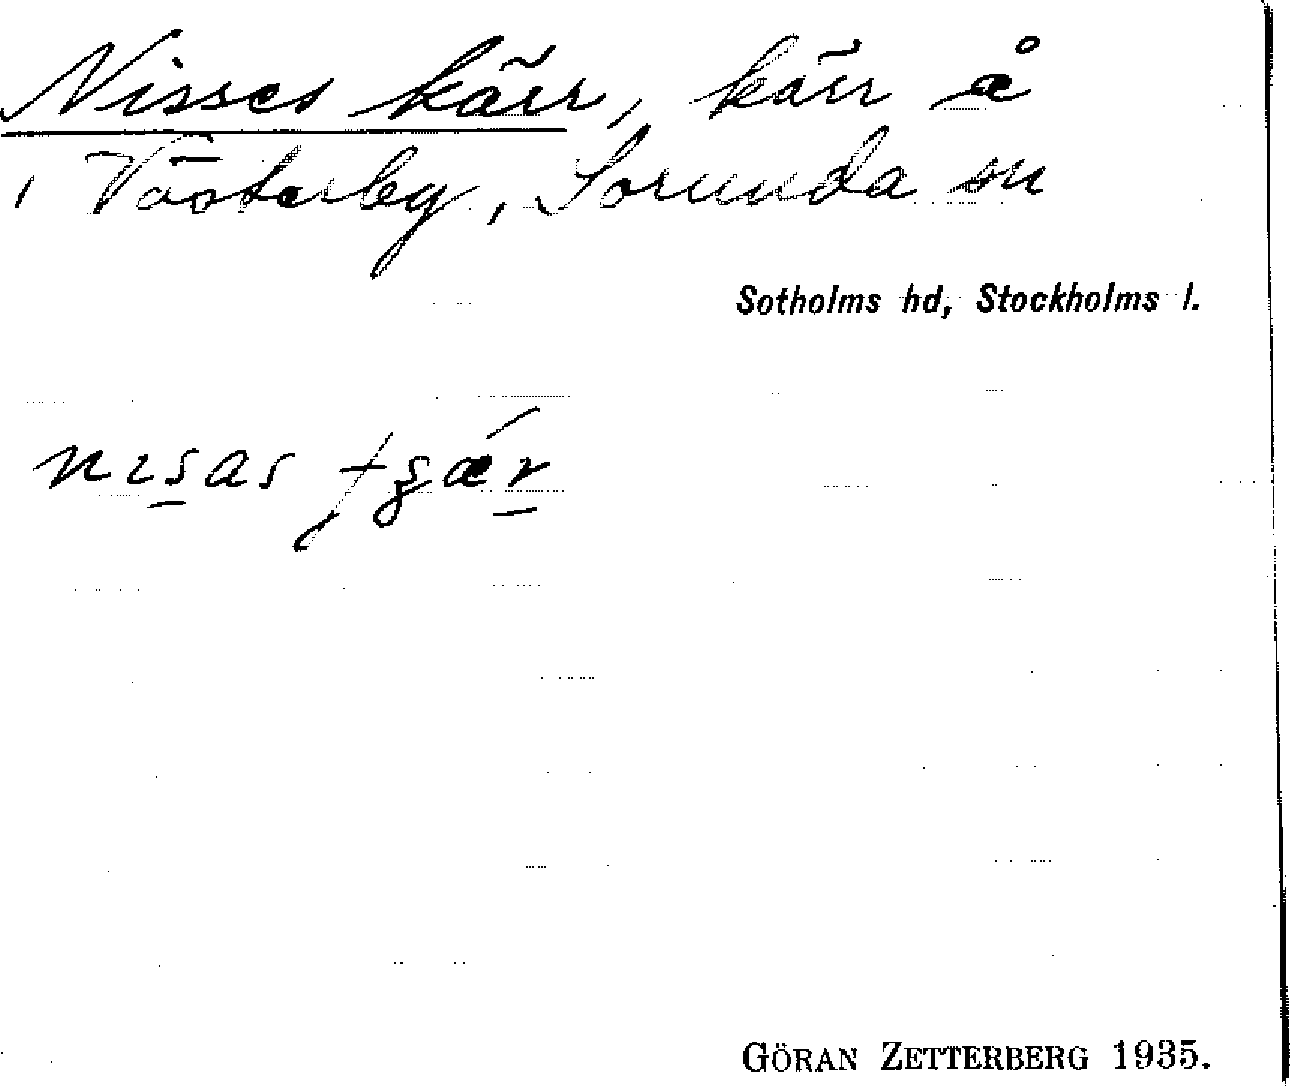 Nisses kärr, kärr å
, Västerby, Sorunda sn
Sotholms hd, Stockholms l.
GÖRAN ZETTERBERG 1935.